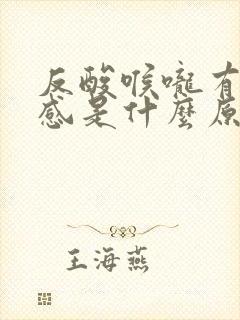 反酸喉嚨有
感是什麼原
王海燕